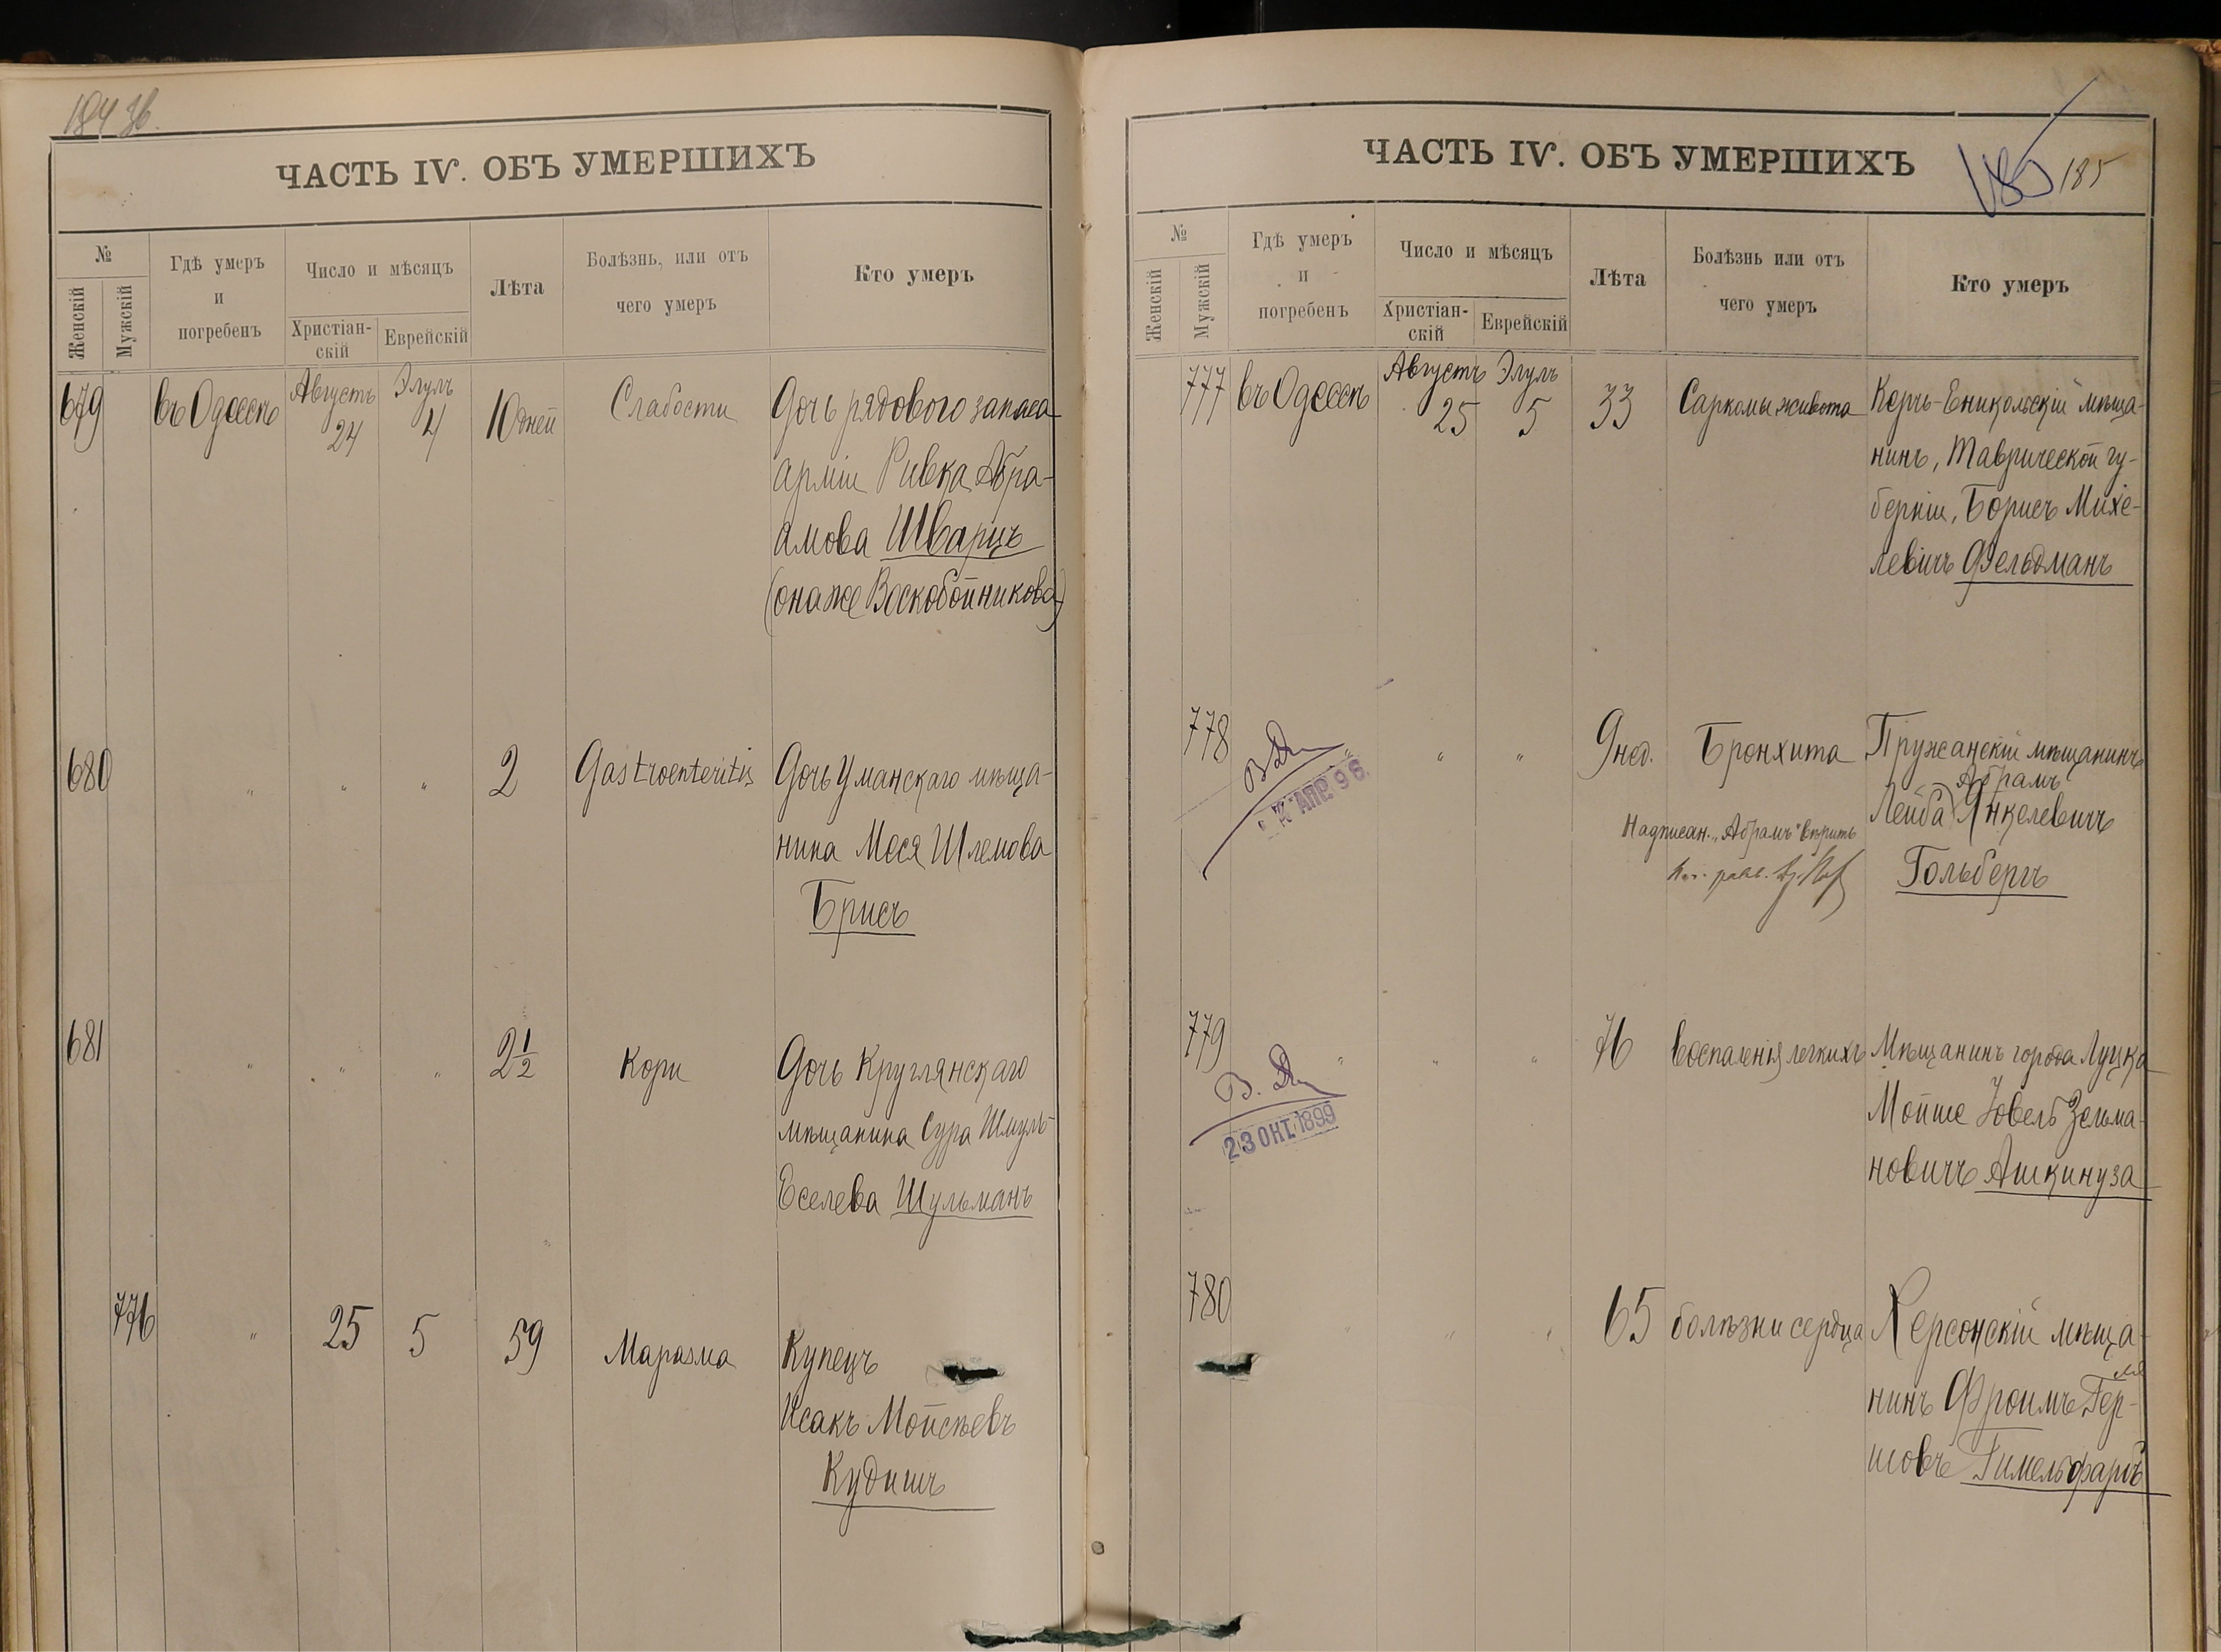 184 зб.
ЧАСТЬ IV. ОБЪ УМЕРШИХЪ
№
Женскій
Мужскій
Гдѣ умеръ
и
погребенъ
Число и мѣсяцъ
Христіан-
скій
Еврейскій
Лѣта
Болѣзнь, или отъ
чего умеръ
Кто умеръ
679 въ Одессѣ Августъ 24 Элулъ 4 10 дней Слабости Дочь рядового запаса
арміи Ривка Абра-
амова Шварцъ
(она же Воскобойникова)
680 " " " 2 Gastroenteritis Дочь Уманскаго мѣща-
нина Меся Шлемова
Брисъ
681 " " " 2 1/2 Кори Дочь Круглянскаго
мѣщанина Сура Шмуль-
Еселева Шульманъ
776 " 25 5 59 Маразма Купецъ
Исакъ Мойсѣевъ
Кудишъ
ЧАСТЬ IV. ОБЪ УМЕРШИХЪ
185 185
№
Женскій
Мужскій
Гдѣ умеръ
и
погребенъ
Число и мѣсяцъ
Христіан-
скій
Еврейскій
Лѣта
Болѣзнь или отъ
чего умеръ
Кто умеръ
777 въ Одессѣ Августъ 25 Элулъ 5 33 Саркомы живота Керчь-Еникольскій мѣща-
нинъ, Таврической гу-
берніи, Борисъ Михе-
левичъ Фельдманъ
778 " " " 9 нед. Бронхита Пружанскій мѣщанинъ
Абрамъ
Лейба Янкелевичъ
Гольбергъ
АПР. 96.
Надписан. "Абрамъ" вѣрить
779 " " " 76 Воспаленія легкихъ Мѣщанинъ города Луцка
Мойше Іовель Зельма-
новичъ Ашкинуза
23 ОКТ. 1899
780 " " " 65 болѣзни сердца Херсонскій мѣща-
нинъ Фроимъ Гер-
шовъ Гимельфарбъ